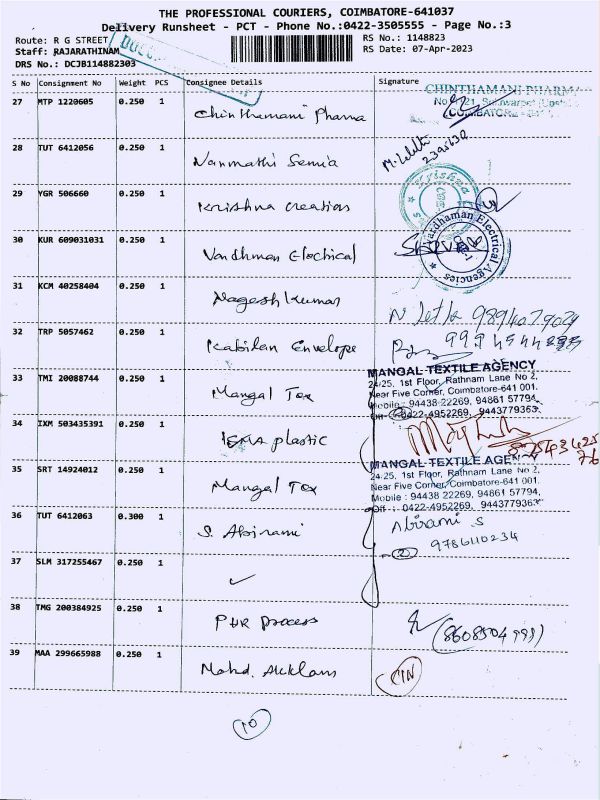 THE PROFESSIONAL COURIERS, COIMBATORE-641037
Delivery Runsheet - PCT - Phone No.:0422-3505555 - Page No.:3
Route: R G STREET
Staff: RAJARATHINAM
DRS No.: DCJB114882303
RS No.: 1148823
RS Date: 07-Apr-2023
S No Consignment No Weight PCS Consignee Details Signature
27 MTP 1220605 0.250 1 Chinthamani Pharma
CHINTHAMANI PHARMA
28 TUT 6412056 0.250 1 Nanmathi Semia
29 YGR 506660 0.250 1 Krishna Creation
Krishna
30 KUR 609031031 0.250 1 Vardhman Electrical
Vardhaman Electrical Agencies
31 KCM 40258404 0.250 1 Nagesh Kumar
32 TRP 5057462 0.250 1 Kabilan Envelope
33 TMI 20088744 0.250 1 Mangal Tex
MANGAL TEXTILE AGENCY
24/25, 1st Floor, Rathnam Lane No 2,
Near Five Corner, Coimbatore-641 001.
Mobile : 94438-22269, 94861 57794,
Off : 0422-4952269, 9443779363
34 IXM 503435391 0.250 1 plastic
35 SRT 14924012 0.250 1 Mangal Tex
MANGAL TEXTILE AGEN
24/25, 1st Floor, Rathnam Lane No 2,
Near Five Corner, Coimbatore-641 001.
Mobile : 94438 22269, 94861 57794,
Off : 0422-4952269, 9443779363
36 TUT 6412063 0.300 1 S. Abirami
Abirami S
9786110234
37 SLM 317255467 0.250 1
38 TMG 200384925 0.250 1 Process
(8608504999)
39 MAA 299665988 0.250 1 Mohd.
10